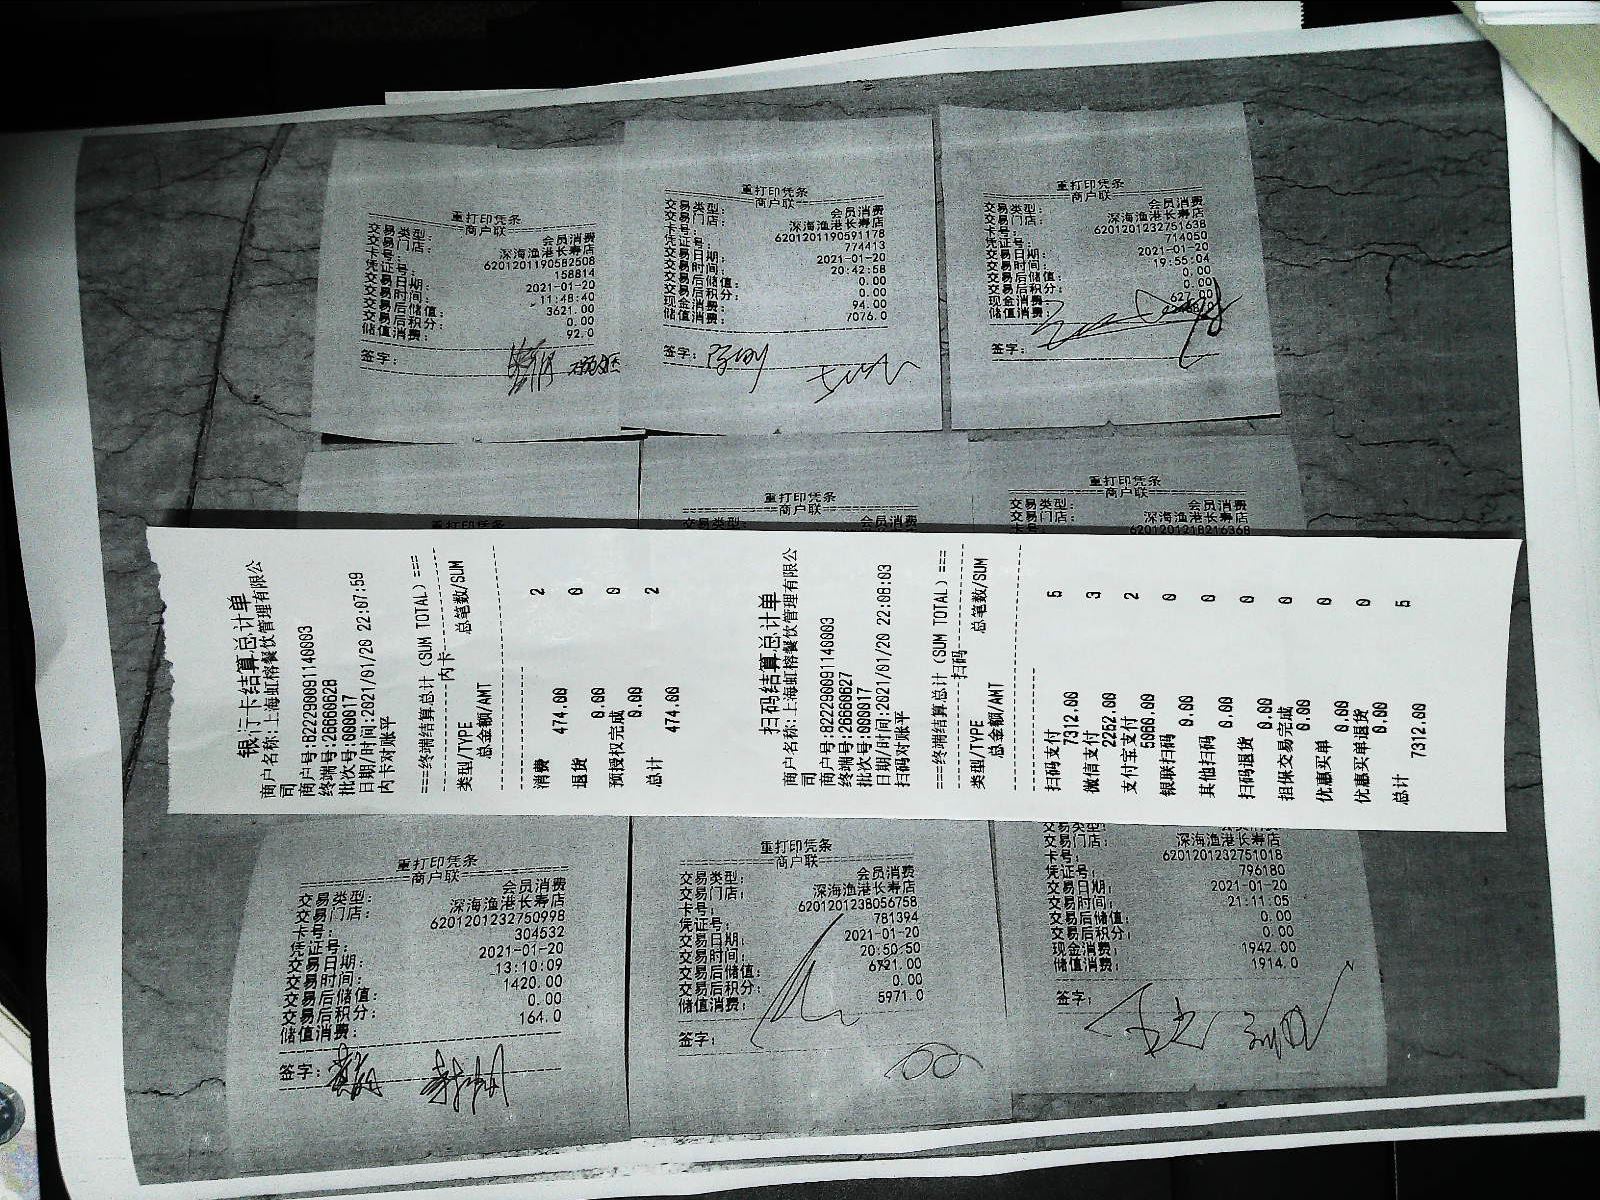 重打印凭条
商户联
交易类型： 会员消费
交易门店： 深海渔港长寿店
卡号： 6201201190582508
凭证号： 158814
交易日期： 2021-01-20
交易时间： 11:48:40
交易后储值： 3621.00
交易后积分： 0.00
储值消费： 92.0
签字：
重打印凭条
商户联
交易类型： 会员消费
交易门店： 深海渔港长寿店
卡号： 6201201190591178
凭证号： 774413
交易日期： 2021-01-20
交易时间： 20:42:58
交易后储值： 0.00
交易后积分： 0.00
现金消费： 94.00
储值消费： 7076.0
签字：
重打印凭条
商户联
交易类型： 会员消费
交易门店： 深海渔港长寿店
卡号： 6201201232751638
凭证号： 714050
交易日期： 2021-01-20
交易时间： 19:55:04
交易后储值： 0.00
交易后积分： 0.00
现金消费：
储值消费：
签字：
重打印凭条
重打印凭条
商户联
交易类型： 会员消费
重打印凭条
商户联
交易类型： 会员消费
交易门店： 深海渔港长寿店
6201201218216368
银行卡结算总计单
商户名称:上海虹榕餐饮管理有限公
司
商户号:822290091140003
终端号:26660628
批次号:000017
日期/时间:2021/01/20 22:07:59
内卡对账平
===终端结算总计(SUM TOTAL)===
内卡
类型/TYPE 总笔数/SUM
总金额/AMT
消费 2
474.00
退货 0
0.00
预授权完成 0
0.00
总计 2
474.00
扫码结算总计单
商户名称:上海虹榕餐饮管理有限公
司
商户号:822290091140003
终端号:26660627
批次号:000017
日期/时间:2021/01/20 22:08:03
扫码对账平
===终端结算总计(SUM TOTAL)===
扫码
类型/TYPE 总笔数/SUM
总金额/AMT
扫码支付 5
7312.00
微信支付 3
2252.00
支付宝支付 2
5060.00
银联扫码 0
0.00
其他扫码 0
0.00
扫码退货 0
0.00
担保交易完成 0
0.00
优惠买单 0
0.00
优惠买单退货 0
0.00
总计 5
7312.00
重打印凭条
商户联
交易类型： 会员消费
交易门店： 深海渔港长寿店
卡号： 6201201232750998
凭证号： 304532
交易日期： 2021-01-20
交易时间： 13:10:09
交易后储值： 1420.00
交易后积分： 0.00
储值消费： 164.0
签字：
重打印凭条
商户联
交易类型： 会员消费
交易门店： 深海渔港长寿店
卡号： 6201201238056758
凭证号： 781394
交易日期： 2021-01-20
交易时间： 20:50:50
交易后储值：
交易后积分： 0.00
储值消费： 5971.0
签字：
交易类型：
交易门店： 深海渔港长寿店
卡号： 6201201232751018
凭证号： 796180
交易日期： 2021-01-20
交易时间： 21:11:05
交易后储值： 0.00
交易后积分： 0.00
现金消费： 1942.00
储值消费： 1914.0
签字：